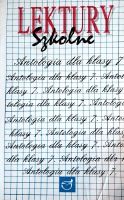 LEKTURY
Szkolne
Antologia dla klasy 7.
Antologia dla klasy 7. Antolo
klasy 7. Antologia dla klasy 7.
tologia dla klasy 7. Antologia dla
klasy 7. Antologia dla klasy 7.
Antologia dla klasy 7. Antolo
gia dla klasy 7. Antologia
dla klasy 7. Antologia dla klasy
Antologia dla klasy 7.